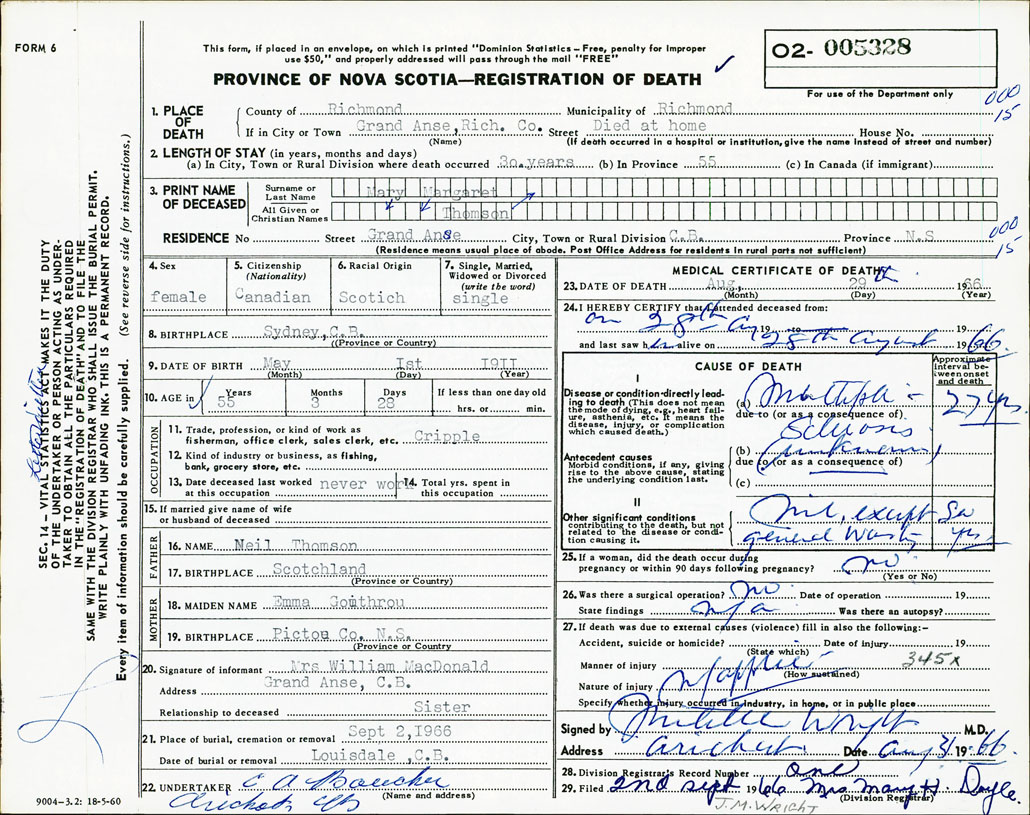 FORM 6
This form, if placed in an envelope, on which is printed "Dominion Statistics – Free, penalty for improper
use $50," and properly addressed will pass through the mail "FREE"
PROVINCE OF NOVA SCOTIA—REGISTRATION OF DEATH
O2- 005328
For use of the Department only
000
15
1. PLACE OF DEATH
County of Richmond Municipality of Richmond
If in City or Town Grand Anse, Rich. Co. Street Died at home House No.
(Name) (If death occurred in a hospital or institution, give the name instead of street and number)
2. LENGTH OF STAY (in years, months and days)
(a) In City, Town or Rural Division where death occurred 30 years (b) In Province 55 (c) In Canada (if immigrant)
3. PRINT NAME OF DECEASED
Surname or Last Name Mary Margaret
All Given or Christian Names Thomson
RESIDENCE No Street Grand Anse City, Town or Rural Division C.B. Province N.S
000
15
(Residence means usual place of abode. Post Office Address for residents in rural parts not sufficient)
4. Sex
female
5. Citizenship
(Nationality)
Canadian
6. Racial Origin
Scotich
7. Single, Married,
Widowed or Divorced
(write the word)
single
8. BIRTHPLACE Sydney, C.B.
((Province or Country)
9. DATE OF BIRTH May Ist I9II
(Month) (Day) (Year)
10. AGE in Years 55 Months 3 Days 28 If less than one day old
hrs. or min.
OCCUPATION
11. Trade, profession, or kind of work as
fisherman, office clerk, sales clerk, etc. Cripple
12. Kind of industry or business, as fishing,
bank, grocery store, etc.
13. Date deceased last worked
at this occupation never work
14. Total yrs. spent in
this occupation
15. If married give name of wife
or husband of deceased
FATHER
16. NAME Neil Thomson
17. BIRTHPLACE Scotchland
(Province or Country)
MOTHER
18. MAIDEN NAME Emma Gomthrou
19. BIRTHPLACE Pictou Co. N.S.
(Province or Country
20. Signature of informant Mrs William MacDonald
Address Grand Anse, C.B.
Relationship to deceased Sister
21. Place of burial, cremation or removal Sept 2,1966
Date of burial or removal Louisdale, C.B.
22. UNDERTAKER C A Boucher
(Name and address)
Arichat
9004-3.2: 18-5-60
SEC. 14 – VITAL STATISTICS ACT MAKES IT THE DUTY
OF THE UNDERTAKER OR PERSON ACTING AS UNDER-
TAKER TO OBTAIN ALL THE PARTICULARS REQUIRED
IN THE "REGISTRATION OF DEATH" AND TO FILE THE
SAME WITH THE DIVISION REGISTRAR WHO SHALL ISSUE THE BURIAL PERMIT.
WRITE PLAINLY WITH UNFADING INK. THIS IS A PERMANENT RECORD.
Every item of information should be carefully supplied. (See reverse side for instructions.)
MEDICAL CERTIFICATE OF DEATH
23. DATE OF DEATH Aug, 29th 1966
(Month) (Day) (Year)
24. I HEREBY CERTIFY that I attended deceased from:
on 28th Aug 19 to 19
and last saw her alive on 28th August 1966
CAUSE OF DEATH
Approximate
interval be-
tween onset
and death
I
Disease or condition directly lead-
ing to death (This does not mean
the mode of dying, e.g., heart fail-
ure, asthenia, etc. It means the
disease, injury, or complication
which caused death.)
(a) Multiple - 27 yrs.
due to (or as a consequence of)
Sclerosis
Antecedent causes
Morbid conditions, if any, giving
rise to the above cause, stating
the underlying condition last.
(b) (unknown)
due to (or as a consequence of)
(c)
II
Other significant conditions
contributing to the death, but not
related to the disease or condi-
tion causing it.
Nil, except
general
yrs.
25. If a woman, did the death occur during
pregnancy or within 90 days following pregnancy? no
(Yes or No)
26. Was there a surgical operation? no Date of operation 19
State findings n/a Was there an autopsy?
27. If death was due to external causes (violence) fill in also the following:–
Accident, suicide or homicide? Date of injury 19
(State which)
345x
Manner of injury
(How sustained)
Nature of injury
Specify whether injury occurred in industry, in home, or in public place
Signed by M.D.
Address Arichat Date Aug 31 1966
28. Division Registrar's Record Number one
29. Filed 2nd Sept 1966 Mrs Mary H. Doyle.
(Division Registrar)
J.M. WRIGHT